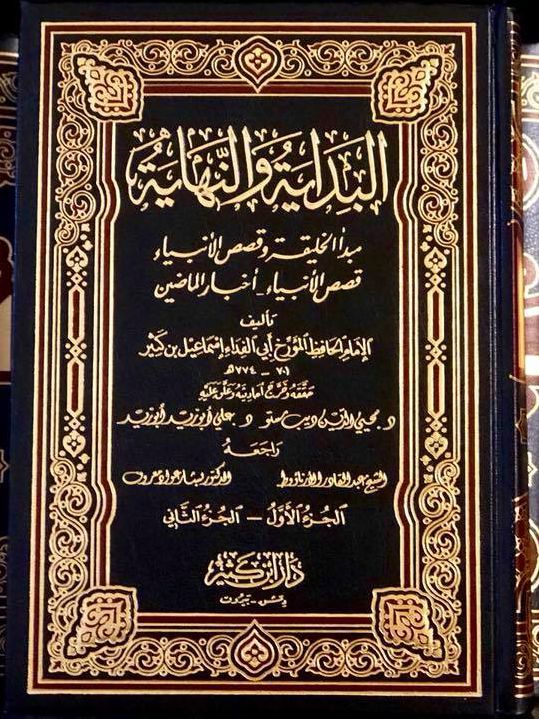 البداية والنهاية
مبدأ الخليقة وقصص الأنبياء
قصص الأنبياء - أخبار الماضين
تأليف
الإمام الحافظ المؤرخ أبي الفداء إسماعيل بن كثير
٧٠١ - ٧٧٤ هـ
حققه وخرج أحاديثه وعلق عليه
د. محيي الدين ديب مستو د. علي أبو زيد أبو زيد
راجعه
الشيخ عبد القادر الأرناؤوط الدكتور بشار عواد معروف
الجزء الأول - الجزء الثاني
دار ابن كثير
دمشق - بيروت